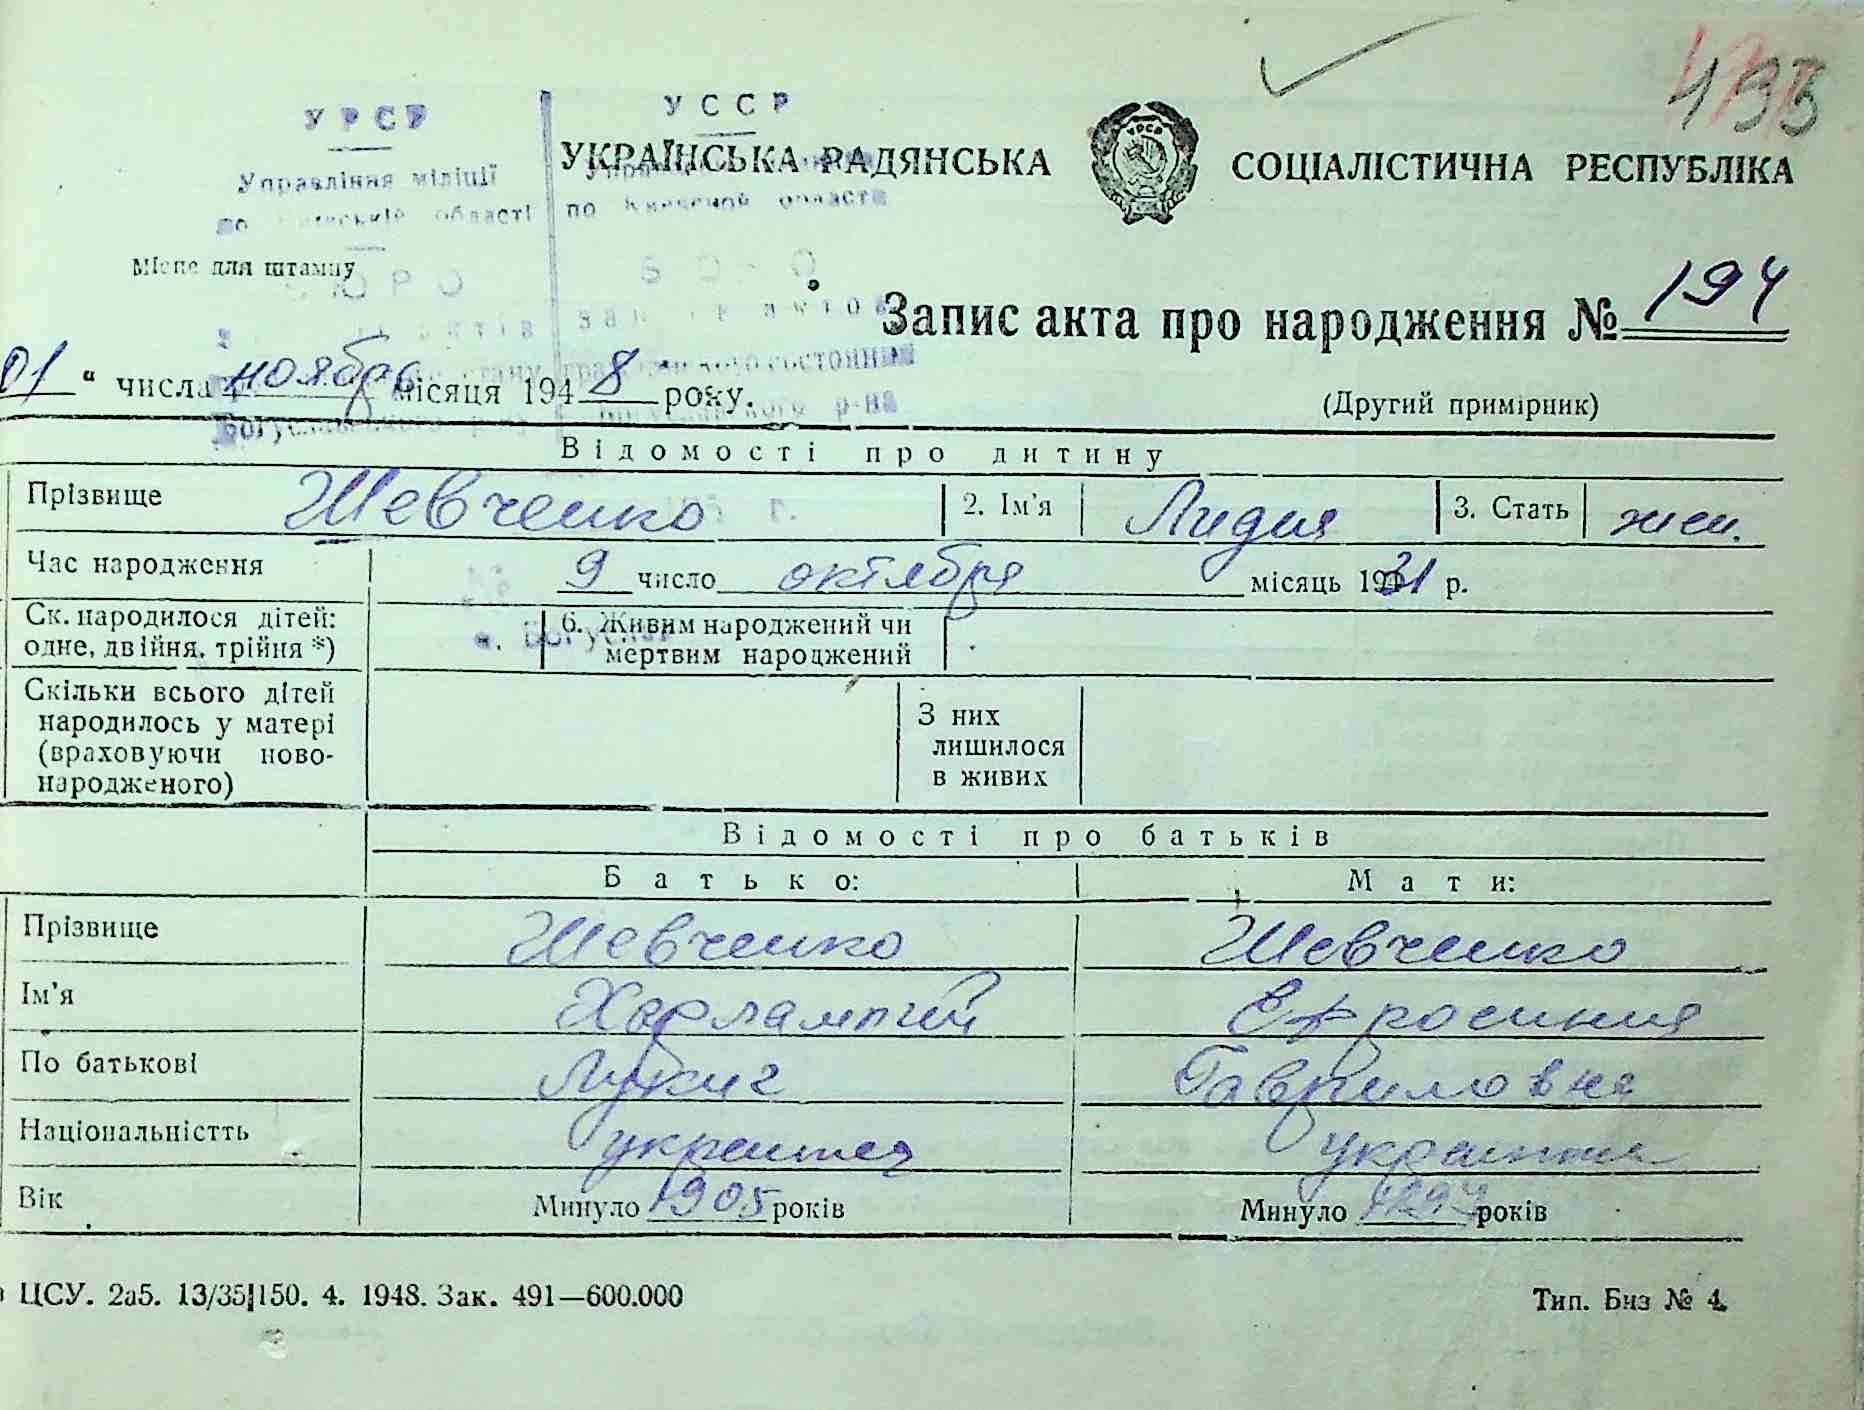 193
УРСР
УССР
Управління міліції
по Київській області
по Киевской области
УКРАЇНСЬКА РАДЯНСЬКА СОЦІАЛІСТИЧНА РЕСПУБЛІКА
Місце для штампу
БЮРО
Запис акта про народження № 194
01 " числа ноября місяця 1948 року.
(Другий примірник)
Богуславського р-ну
Відомості про дитину
Прізвище Шевченко 2. Ім'я Лидия 3. Стать жен.
Час народження 9 число октября місяць 1931 р.
Ск. народилося дітей: одне, двійня, трійня *) 6. Живим народжений чи мертвим народжений
м. Богуслав
Скільки всього дітей народилось у матері (враховуючи новонародженого) З них лишилося в живих
Відомості про батьків
Батько: Мати:
Прізвище Шевченко Шевченко
Ім'я Харлампий Ефросиния
По батькові Лукич Гавриловна
Національністть украинец украинка
Вік Минуло 1905 років Минуло років
ЦСУ. 2а5. 13/35|150. 4. 1948. Зак. 491—600.000
Тип. Биз № 4.